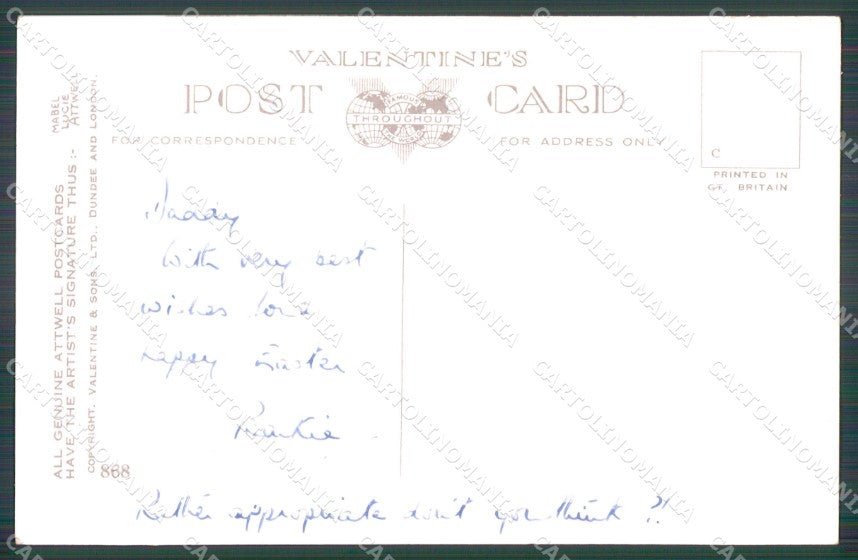 VALENTINE'S
POST CARD
FAMOUS
THROUGHOUT
THE WORLD
FOR CORRESPONDENCE
FOR ADDRESS ONLY
C
PRINTED IN
GT. BRITAIN
ALL GENUINE ATTWELL POSTCARDS
HAVE THE ARTIST'S SIGNATURE THUS :-
MABEL
LUCIE
ATTWELL
COPYRIGHT. VALENTINE & SONS, LTD., DUNDEE AND LONDON.
868
With very best
wishes for a
happy Easter
Rather appropriate don't you think ?!
CARTOLINOMANIA